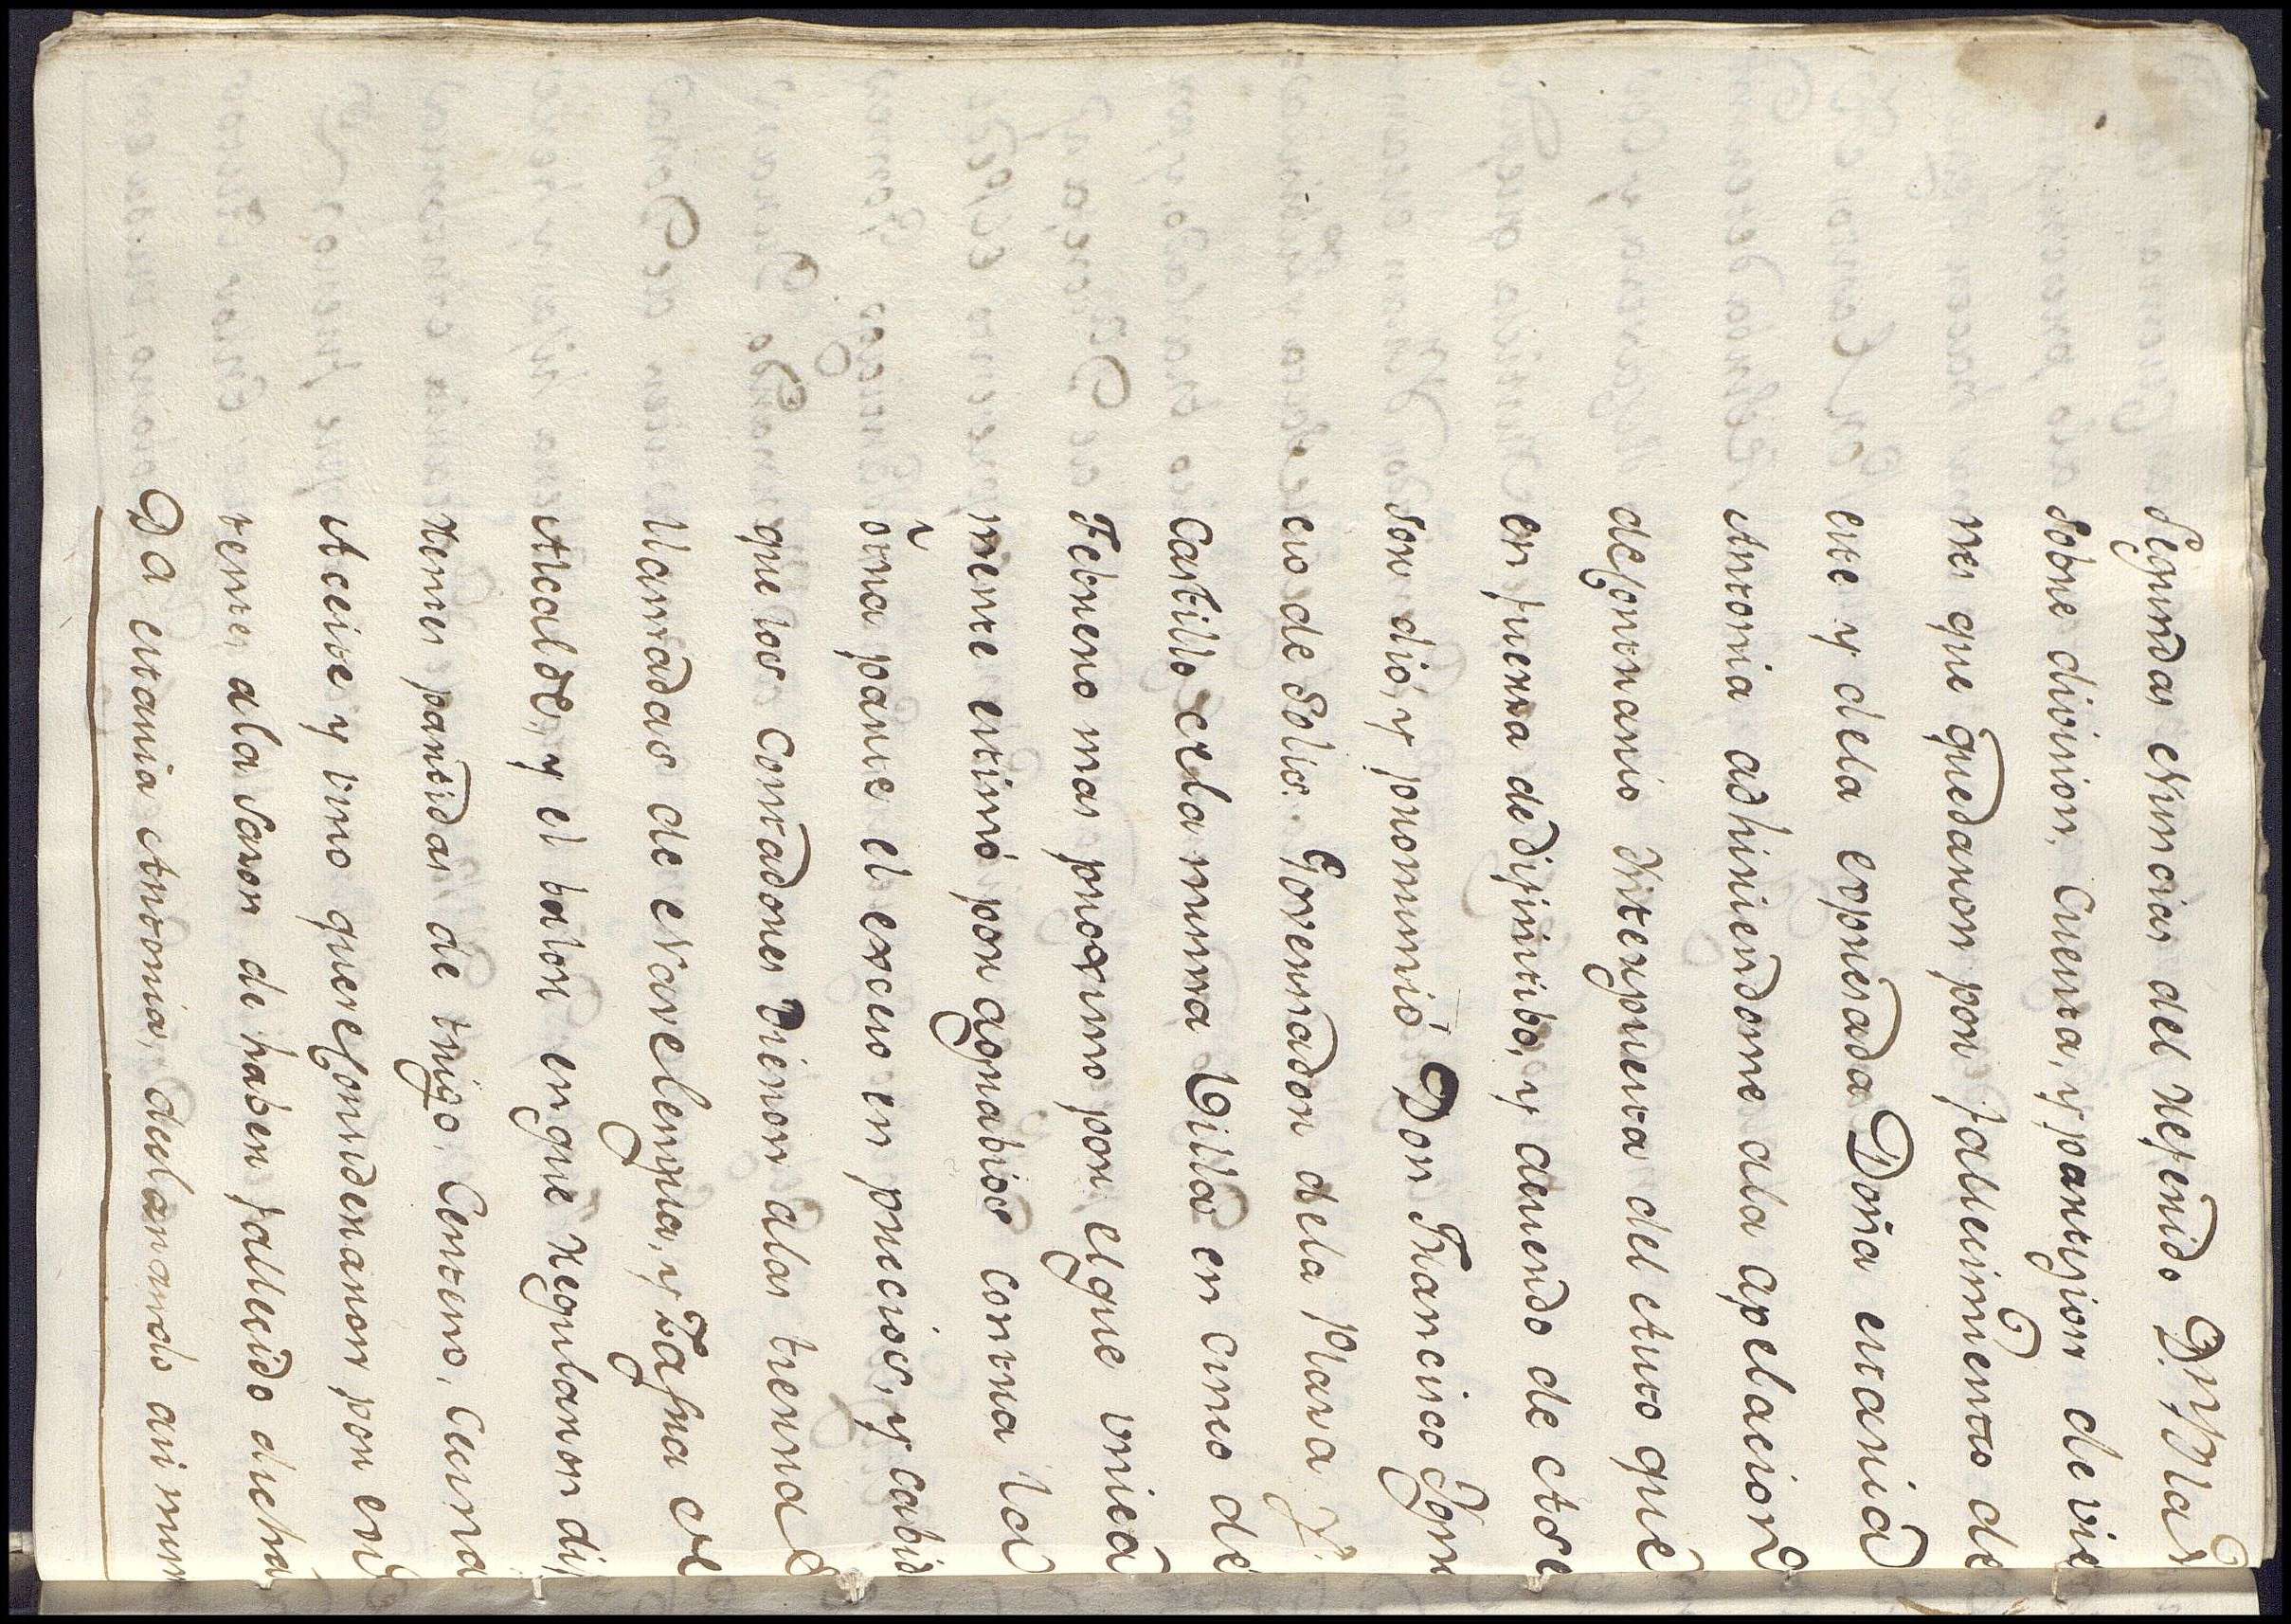 Segundas Nuncias del referido D.n Blas
Sobre division, cuenta, y particion de vie
nes que quedaron por fallecimiento de
este y dela expresada Doña estania
Antonia adhiriendome ala apelacion
de contrario interpuesta del Auto que
en fuerza dedifinitibo, y acuerdo de Ase
sor dió, y pronunció Don Francisco Ygn
cio de Solis Governador dela Plaza y
Castillo dela misma Villa en cinco de
Febrero mas proximo por elque unica
mente estimó por agrabios contra la
otra parte el exceso en precios, y cabid
que los contadores dieron alas tierras
llamadas de Navelengua, y Zafra de
Alcalde, y el balor enque regularon dif
rentes partidas de trigo, Centeno, Carna
Aceite y vino que se consideraron por en
tentes ala sazon de haber fallecido dicha
Da estania Antonia, declarando asi mism